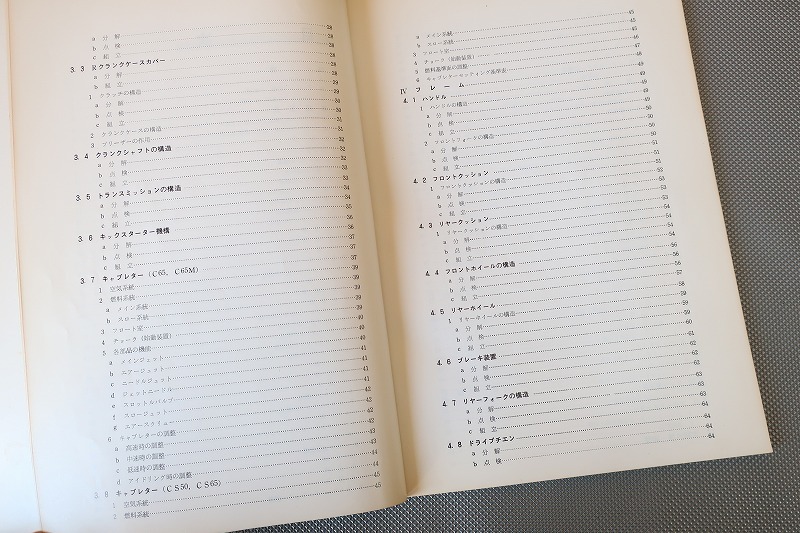 a 分 解 28
b 点 検 28
c 組 立 28
3. 3 Rクランクケースカバー 28
a 分 解 28
b 組 立 28
1 クラッチの構造 29
a 分 解 29
b 点 検 30
c 組 立 30
2 クランクケースの構造 31
3 ブリーザーの作用 31
3. 4 クランクシャフトの構造 32
a 分 解 32
b 点 検 32
c 組 立 33
3. 5 トランスミッションの構造 34
a 分 解 34
b 点 検 35
c 組 立 35
3. 6 キックスターター機構 36
a 分 解 36
b 点 検 37
c 組 立 37
3. 7 キャブレター(C65、C65M) 37
1 空気系統 39
2 燃料系統 39
a メイン系統 39
b スロー系統 39
3 フロート室 39
4 チョーク(始動装置) 40
5 各部品の機能 40
a メインジェット 41
b エアージェット 41
c ニードルジェット 41
d ジェットニードル 41
e スロットルバルブ 42
f スロージェット 42
g エアースクリュー 42
6 キャブレターの調整 42
a 高速時の調整 43
b 中速時の調整 43
c 低速時の調整 44
d アイドリング時の調整 44
3. 8 キャブレター(CS50、CS65) 45
1 空気系統 45
2 燃料系統
a メイン系統 45
b スロー系統 45
3 フロート室 45
4 チョーク(始動装置) 46
5 燃料基準表の調整 47
6 キャブレターセッティング基準表 48
Ⅳ フ レ ー ム 49
4. 1 ハンドル 49
1 ハンドルの構造 49
a 分 解 49
b 点 検 49
c 組 立 50
2 フロントフォークの構造 50
a 分 解 50
b 点 検 51
c 組 立 51
4. 2 フロントクッション 52
1 フロントクッションの構造 52
a 分 解 53
b 点 検 53
c 組 立 54
4. 3 リヤークッション 54
1 リヤークッションの構造 54
a 分 解 54
b 点 検 54
c 組 立 56
4. 4 フロントホイールの構造 56
a 分 解 56
b 点 検 57
c 組 立 58
4. 5 リヤーホイール 58
1 リヤーホイールの構造 59
a 分 解 59
b 点 検 60
c 組 立 61
4. 6 ブレーキ装置 62
a 分 解 62
b 点 検 62
c 組 立 63
4. 7 リヤーフォークの構造 63
a 分 解 63
b 点 検 64
c 組 立 64
4. 8 ドライブチエン
a 分 解 64
b 点 検 64